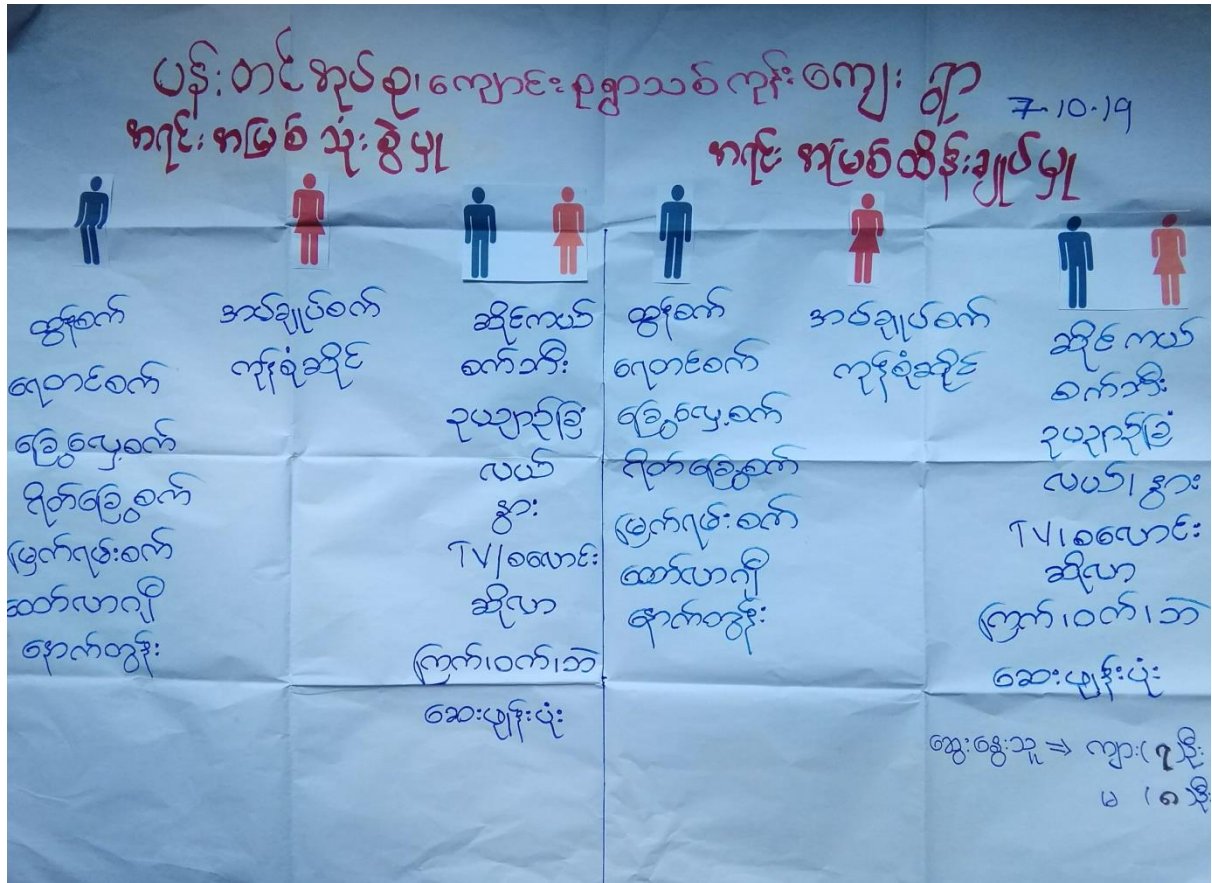 ပန်းတင်အုပ်စု၊ ကျောင်းစုရွာသစ်ကုန်းကျေးရွာ
7-10-19
အရင်းအမြစ် သုံးစွဲမှု
အရင်းအမြစ်ထိန်းချုပ်မှု
ထွန်စက်
ရေတင်စက်
ခြွေလှေ့စက်
ရိတ်ခြွေစက်
မြက်ရမ်းစက်
ထော်လာဂျီ
နောက်တွန်း
အပ်ချုပ်စက်
ကုန်စုံဆိုင်
ဆိုင်ကယ်
စက်ဘီး
ဥယျာဉ်ခြံ
လယ်
နွား
TV/စလောင်း
ဆိုလာ
ကြက်၊ဝက်၊ဘဲ
ဆေးဖျန်းပုံး
ထွန်စက်
ရေတင်စက်
ခြွေလှေ့စက်
ရိတ်ခြွေစက်
မြက်ရမ်းစက်
ထော်လာဂျီ
နောက်တွန်း
အပ်ချုပ်စက်
ကုန်စုံဆိုင်
ဆိုင်ကယ်
စက်ဘီး
ဥယျာဉ်ခြံ
လယ်၊ နွား
TV၊စလောင်း
ဆိုလာ
ကြက်၊ဝက်၊ဘဲ
ဆေးဖျန်းပုံး
ဆွေးနွေးသူ ⇒ ကျား(၇)ဦး
မ (၈)ဦး